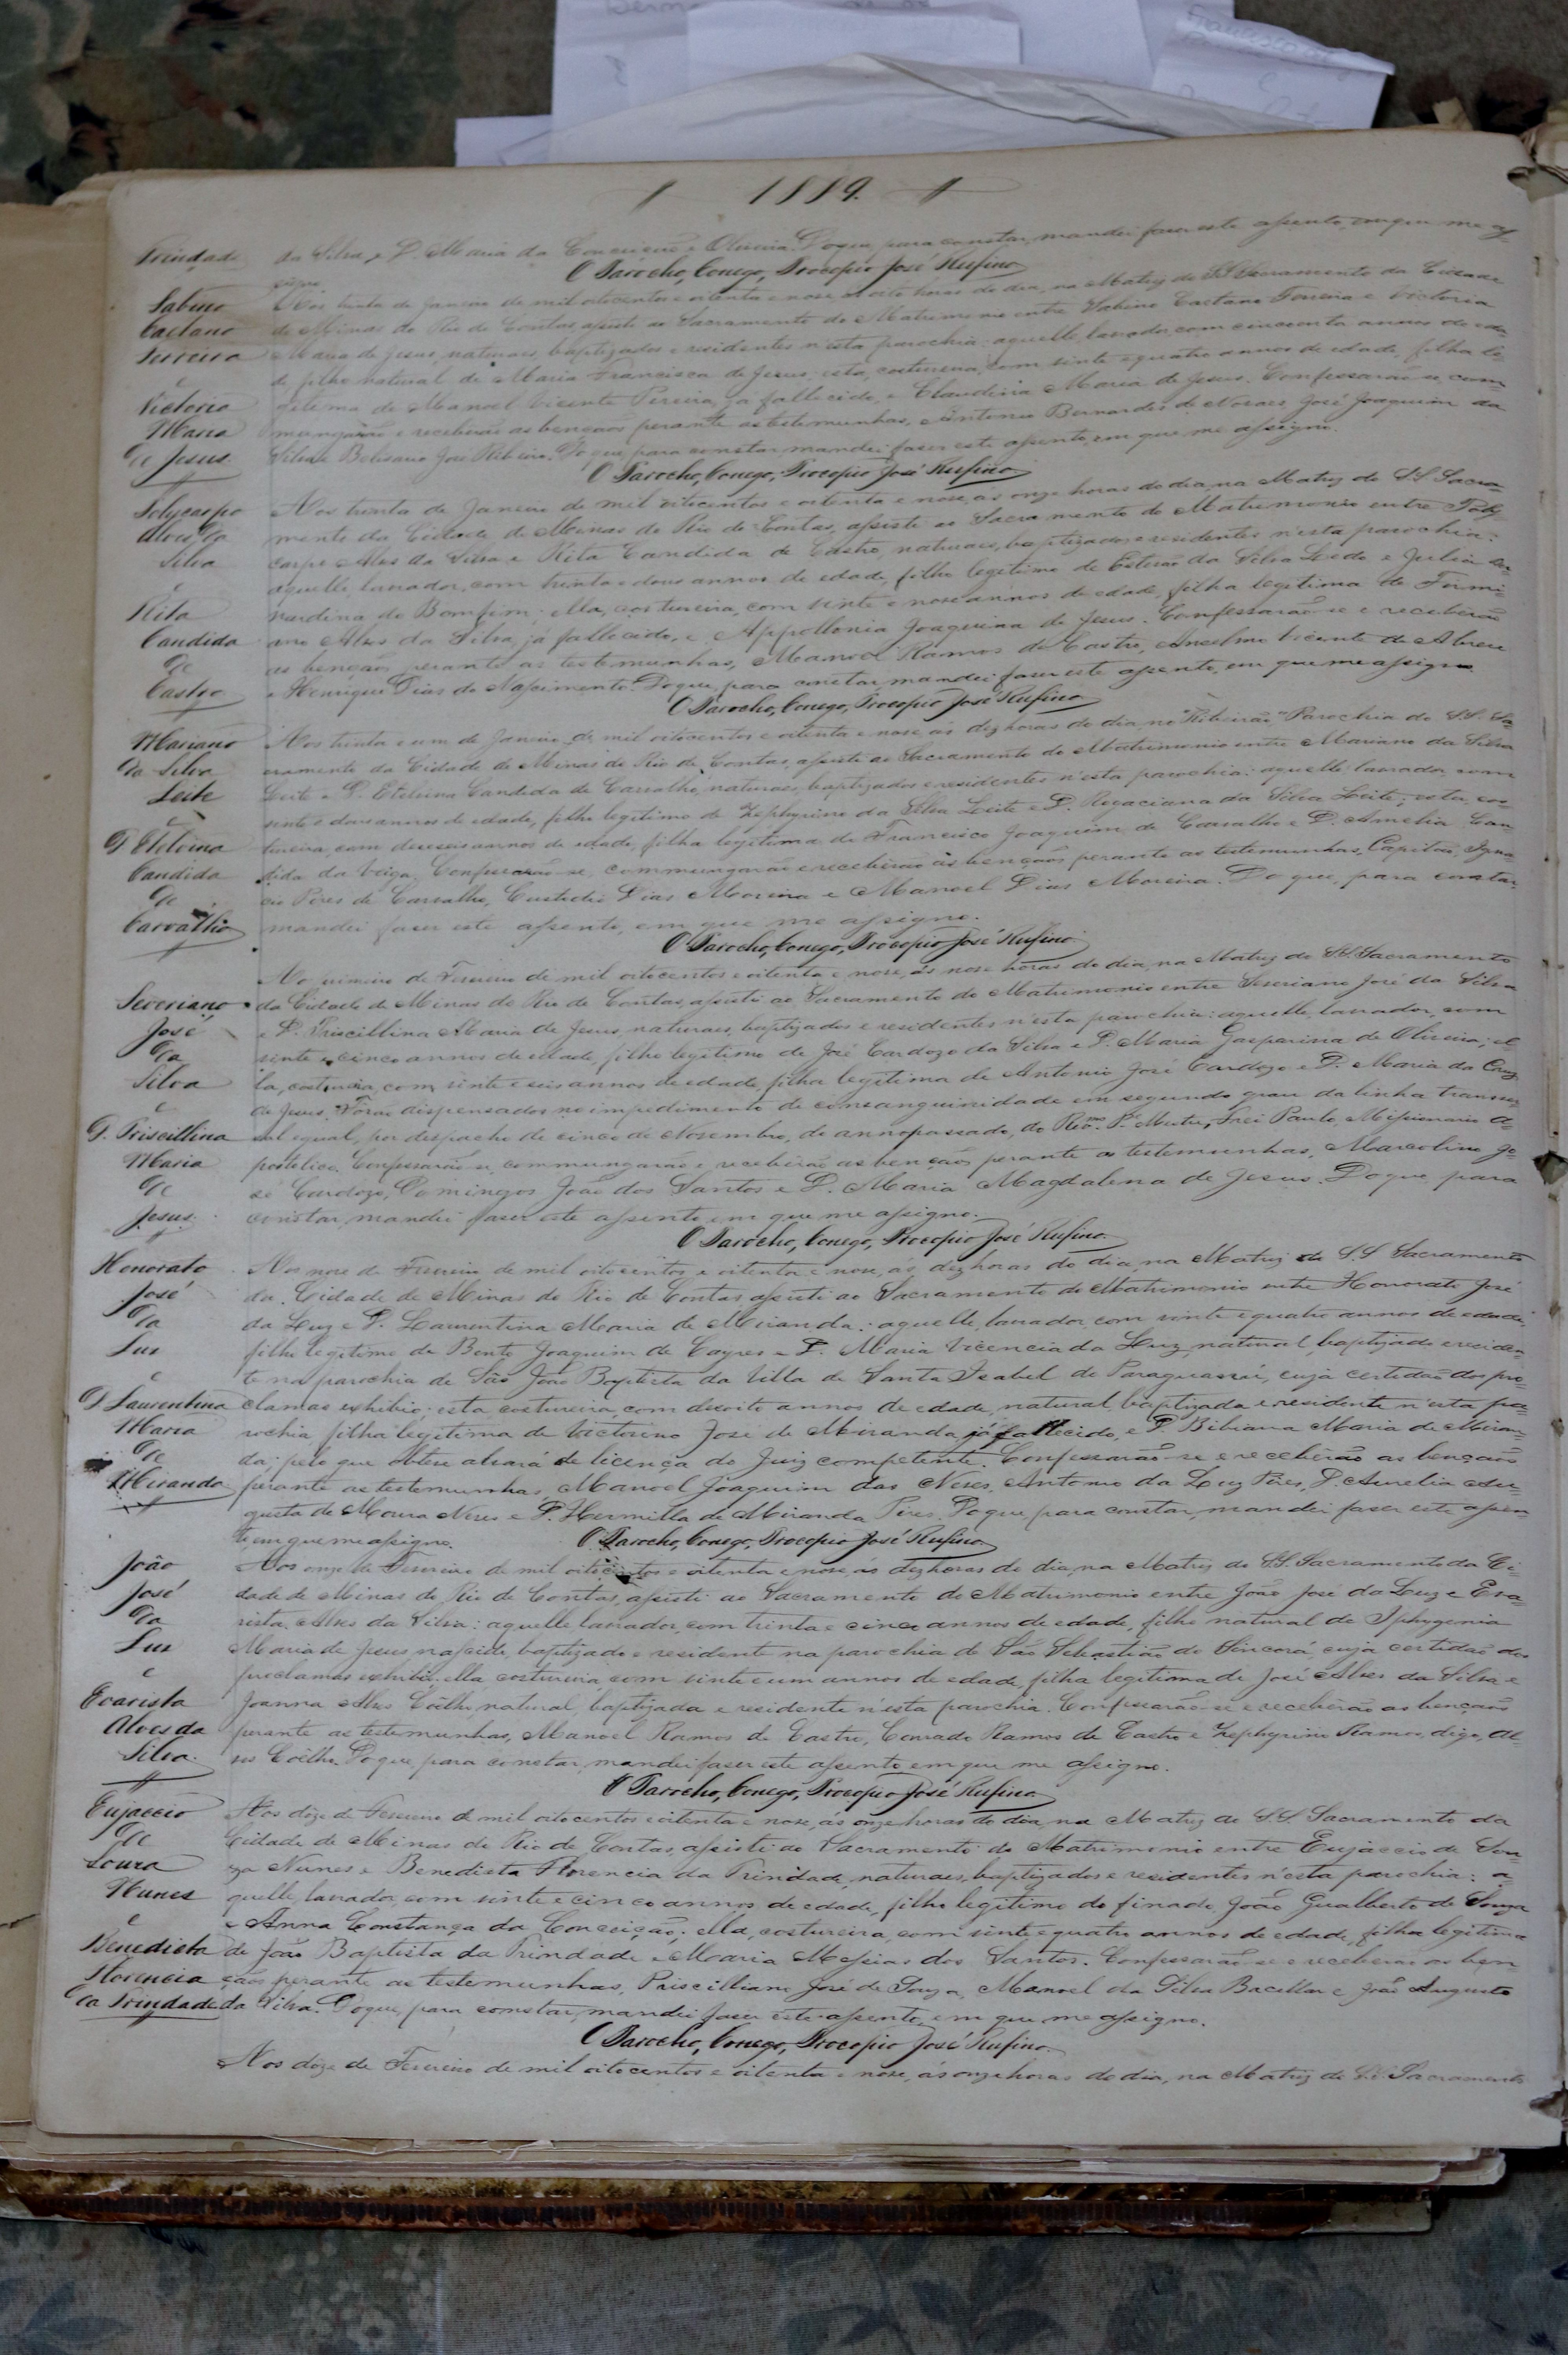 1889.
Trindade da Silva, e D. Maria da Conceição e Oliveira. Do que, para constar, mandei faser este assento, em que me as-
signo. O Parocho, Conego, Procopio José Rufino
Sabino Aos trinta de Janeiro de mil oitocentos e oitenta e nove, ás oito horas do dia, na Matriz do SS. Sacramento da Cidade
Caetano de Minas do Rio de Contas, assisti ao Sacramento do Matrimonio entre Sabino Caetano Ferreira e Victoria
Ferreira Maria de Jesus, naturaes, baptizados e residentes n'esta parochia: aquelle, lavrador, com cincoenta annos de eda-
e de filho natural de Maria Francisca de Jesus; esta, costureira, com vinte e quatro annos de edade, filha le-
Victoria gitima de Manoel Vicente Pereira, já fallecido, e Claudina Maria de Jesus. Confessarão-se, com-
Maria mungarão e receberão as bençãos perante as testemunhas, Antonio Bernardes de Novaes, José Joaquim da
de Jesus Silva e Belisario José Ribeiro. Do que, para constar, mandei faser este assento, em que me assigno.
O Parocho, Conego, Procopio José Rufino
Polycarpo Aos trinta de Janeiro de mil oitocentos e oitenta e nove, ás onze horas do dia, na Matriz do SS. Sacra-
Alves da mento da Cidade de Minas do Rio de Contas, assisti ao Sacramento do Matrimonio entre Poly-
Silva carpo Alves da Silva e Rita Candida de Castro, naturaes, baptizados e residentes n'esta parochia:
e aquelle, lavrador, com trinta e dous annos de edade, filho legitimo de Estevão da Silva Ledo e Julia Ber-
Rita nardina do Bomfim; ella, costureira, com vinte e nove annos de edade, filha legitima de Firmi-
Candida ano Alves da Silva, já fallecido, e Appollonia Joaquina de Jesus. Confessarão-se e receberão
de as bençãos, perante as testemunhas, Manoel Ramos de Castro, Anselmo Vicente de Abreu
Castro e Henrique Dias do Nascimento. Do que, para constar, mandei faser este assento, em que me assigno.
O Parocho, Conego, Procopio José Rufino
Mariano Aos trinta e um de Janeiro de mil oitocentos e oitenta e nove, ás dez horas do dia, no "Ribeirão" Parochia do SS. Sa-
da Silva cramento da Cidade de Minas do Rio de Contas, assisti ao Sacramento do Matrimonio entre Mariano da Silva
Leite Leite e D. Etelvina Candida de Carvalho, naturaes, baptizados e residentes n'esta parochia: aquelle lavrador, com
e vinte e dous annos de edade, filho legitimo de Zephyrino da Silva Leite e D. Rogaciana da Silva Leite; esta, cos-
D. Etelvina tureira, com deseseis annos de edade, filha legitima de Francisco Joaquim de Carvalho e D. Amelia Can-
Candida dida da Veiga. Confessarão-se, commungarão e receberão as bençãos perante as testemunhas, Capitão Igna-
de cio Pires de Carvalho, Custodio Dias Moreira e Manoel Dias Moreira. Do que, para constar,
Carvalho mandei faser este assento, em que me assigno.
O Parocho, Conego, Procopio José Rufino
Ao primeiro de Fevereiro de mil oitocentos e oitenta e nove, ás nove horas do dia, na Matriz do SS. Sacramento
Severiano da Cidade de Minas do Rio de Contas, assisti ao Sacramento do Matrimonio entre Severiano José da Silva
José e D. Priscillina Maria de Jesus, naturaes, baptizados e residentes n'esta parochia: aquelle, lavrador, com
da vinte e cinco annos de edade, filho legitimo de José Cardozo da Silva e D. Maria Gasparina de Oliveira; el-
Silva la, costureira, com vinte e seis annos de edade, filha legitima de Antonio José Cardozo e D. Maria da Cruz
e de Jesus. Forão dispensados no impedimento de consanguinidade em segundo grau da linha transver-
D. Priscillina sal egual, por despacho de cinco de Novembro, do anno passado, do Revmo. Pe. Mestre, Frei Paulo, Missionario A-
Maria postolico. Confessarão-se, commungarão e receberão as bençãos perante as testemunhas, Marcolino Jo-
de sé Cardozo, Domingos João dos Santos e D. Maria Magdalena de Jesus. Do que para
Jesus constar, mandei faser este assento em que me assigno.
O Parocho, Conego, Procopio José Rufino
Honorato Aos nove de Fevereiro de mil oitocentos e oitenta e nove, ás dez horas do dia, na Matriz do S.S. Sacramento
José da Cidade de Minas do Rio de Contas assisti ao Sacramento do Matrimonio entre Honorato José
da da Luz e D. Laurentina Maria de Miranda: aquelle, lavrador, com vinte e quatro annos de edade,
Luz filho legitimo de Bento Joaquim de Cayres e D. Maria Vicencia da Luz, natural, baptizado e residen-
e te na parochia de São João Baptista da Villa de Santa Isabel do Paraguassú, cuja certidão dos pro-
D. Laurentina clamas exhibio; esta costureira, com desoito annos de edade, natural, baptizada e residente n'esta pa-
Maria rochia, filha legitima de Victorino José de Miranda, já fallecido, e D. Bibiana Maria de Miran-
de da; pelo que obteve alvará de licença do Juiz competente. Confessarão-se e receberão as bençãos
Miranda perante as testemunhas Manoel Joaquim das Neves, Antonio da Luz Pires, D. Aurelia Au-
gusta de Moura Neves e D. Hermilla de Miranda Pires. Do que para constar, mandei faser este assen-
to, em que me assigno. O Parocho, Conego, Procopio José Rufino
João Aos onze de Fevereiro de mil oitocentos e oitenta e nove, ás dez horas do dia, na Matriz do SS. Sacramento da Ci-
José dade de Minas do Rio de Contas, assisti ao Sacramento do Matrimonio entre João José da Luz e Eva-
da rista Alves da Silva: aquelle lavrador, com trinta e cinco annos de edade, filho natural de Iphygenia
Luz Maria de Jesus, nascido, baptizado e residente na parochia de São Sebastião do Sincorá, cuja certidão dos
e proclamas exhibio; ella costureira, com vinte e um annos de edade, filha legitima de José Alves da Silva e
Evarista Joanna Alves Coêlho, natural, baptizada e residente n'esta parochia. Confessarão-se e receberão as bençãos
Alves da perante as testemunhas, Manoel Ramos de Castro, Conrado Ramos de Castro e Zephyrino Ramos, digo, Al-
Silva. ves Coêlho. Do que, para constar, mandei faser este assento em que me assigno.
O Parocho, Conego, Procopio José Rufino
Eujaccio Aos doze de Fevereiro de mil oitocentos e oitenta e nove, ás onze horas do dia, na Matriz do S.S. Sacramento da
de Cidade de Minas do Rio de Contas, assisti ao Sacramento do Matrimonio entre Eujaccio de Sou-
Souza za Nunes e Benedicta Florencia da Trindade, naturaes, baptizados e residentes n'esta parochia: a-
Nunes quelle, lavrador, com vinte e cinco annos de edade, filho legitimo do finado João Gualberto de Souza
e e Anna Constança da Conceição; ella, costureira, com vinte e quatro annos de edade, filha legitima
Benedicta de João Baptista da Trindade e Maria Messias dos Santos. Confessarão-se e receberão as ben-
Florencia çãos perante as testemunhas, Priscilliano José de Souza, Manoel da Silva Bacellar e João Augusto
da Trindade da Silva. Do que, para constar, mandei faser este assento, em que me assigno.
O Parocho, Conego, Procopio José Rufino
Aos doze de Fevereiro de mil oitocentos e oitenta e nove, ás onze horas do dia, na Matriz do SS. Sacramento